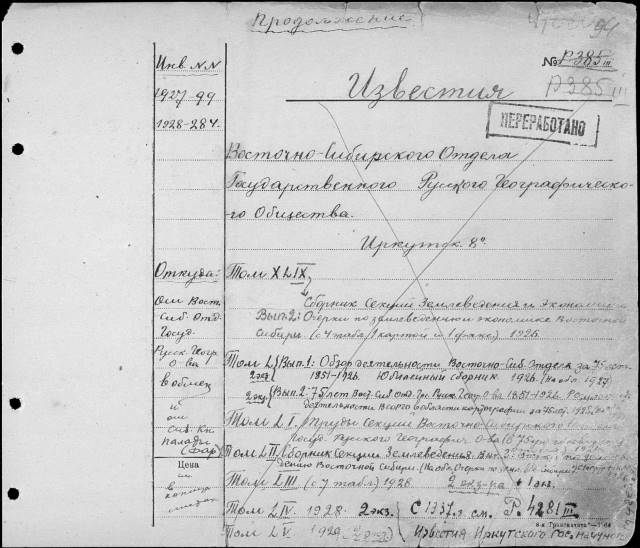 Продолжение
94
№ Р385 III
Инв. NN
Известия
Р385 III
1927-99
ПЕРЕРАБОТАНО
1928-284.
Восточно-Сибирского Отдела
Государственного Русского Географическо-
го Общества.
Иркутск. 8°
Откуда:
Том XLIX
Сборник Секции Землеведения и Экономики
Вып. 2: Очерки по землеведению и экономике Восточной
Сибири. (с 4 табл., 1 картой и 1 факс.) 1926.
От Вост.
Сиб. Отд.
Госуд.
Русск. Геогр.
О-ва
в обмен
и
от
Сиб. Кн.
палаты
(дар)
Том L Вып. 1: Обзор деятельности Восточно-Сиб. Отдела за 75 лет
2 экз. 1851-1926. Юбилейный сборник 1926. (На обл. 1927)
2 экз. Вып. 2: 75 лет Вост. Сиб. Отд. Гос. Русск. Геогр. О-ва 1851-1926.
деятельности
в области картографии за 75 лет.
Том LI. Труды Секции Восточно-
Русского Географич. О-ва
Том LII. Сборник Секции Землеведения. Вып. 3:
дению Восточной Сибири. (На обл. Очерки по
Цена
Том LIII (с 7 табл.) 1928. 2 экз-ра + 1 экз.
Том LIV. 1928. 2 экз. С 1937 г. см. Р. 4281 III
Том LV. 1929 (2 экз.) Известия Иркутского Гос. научного